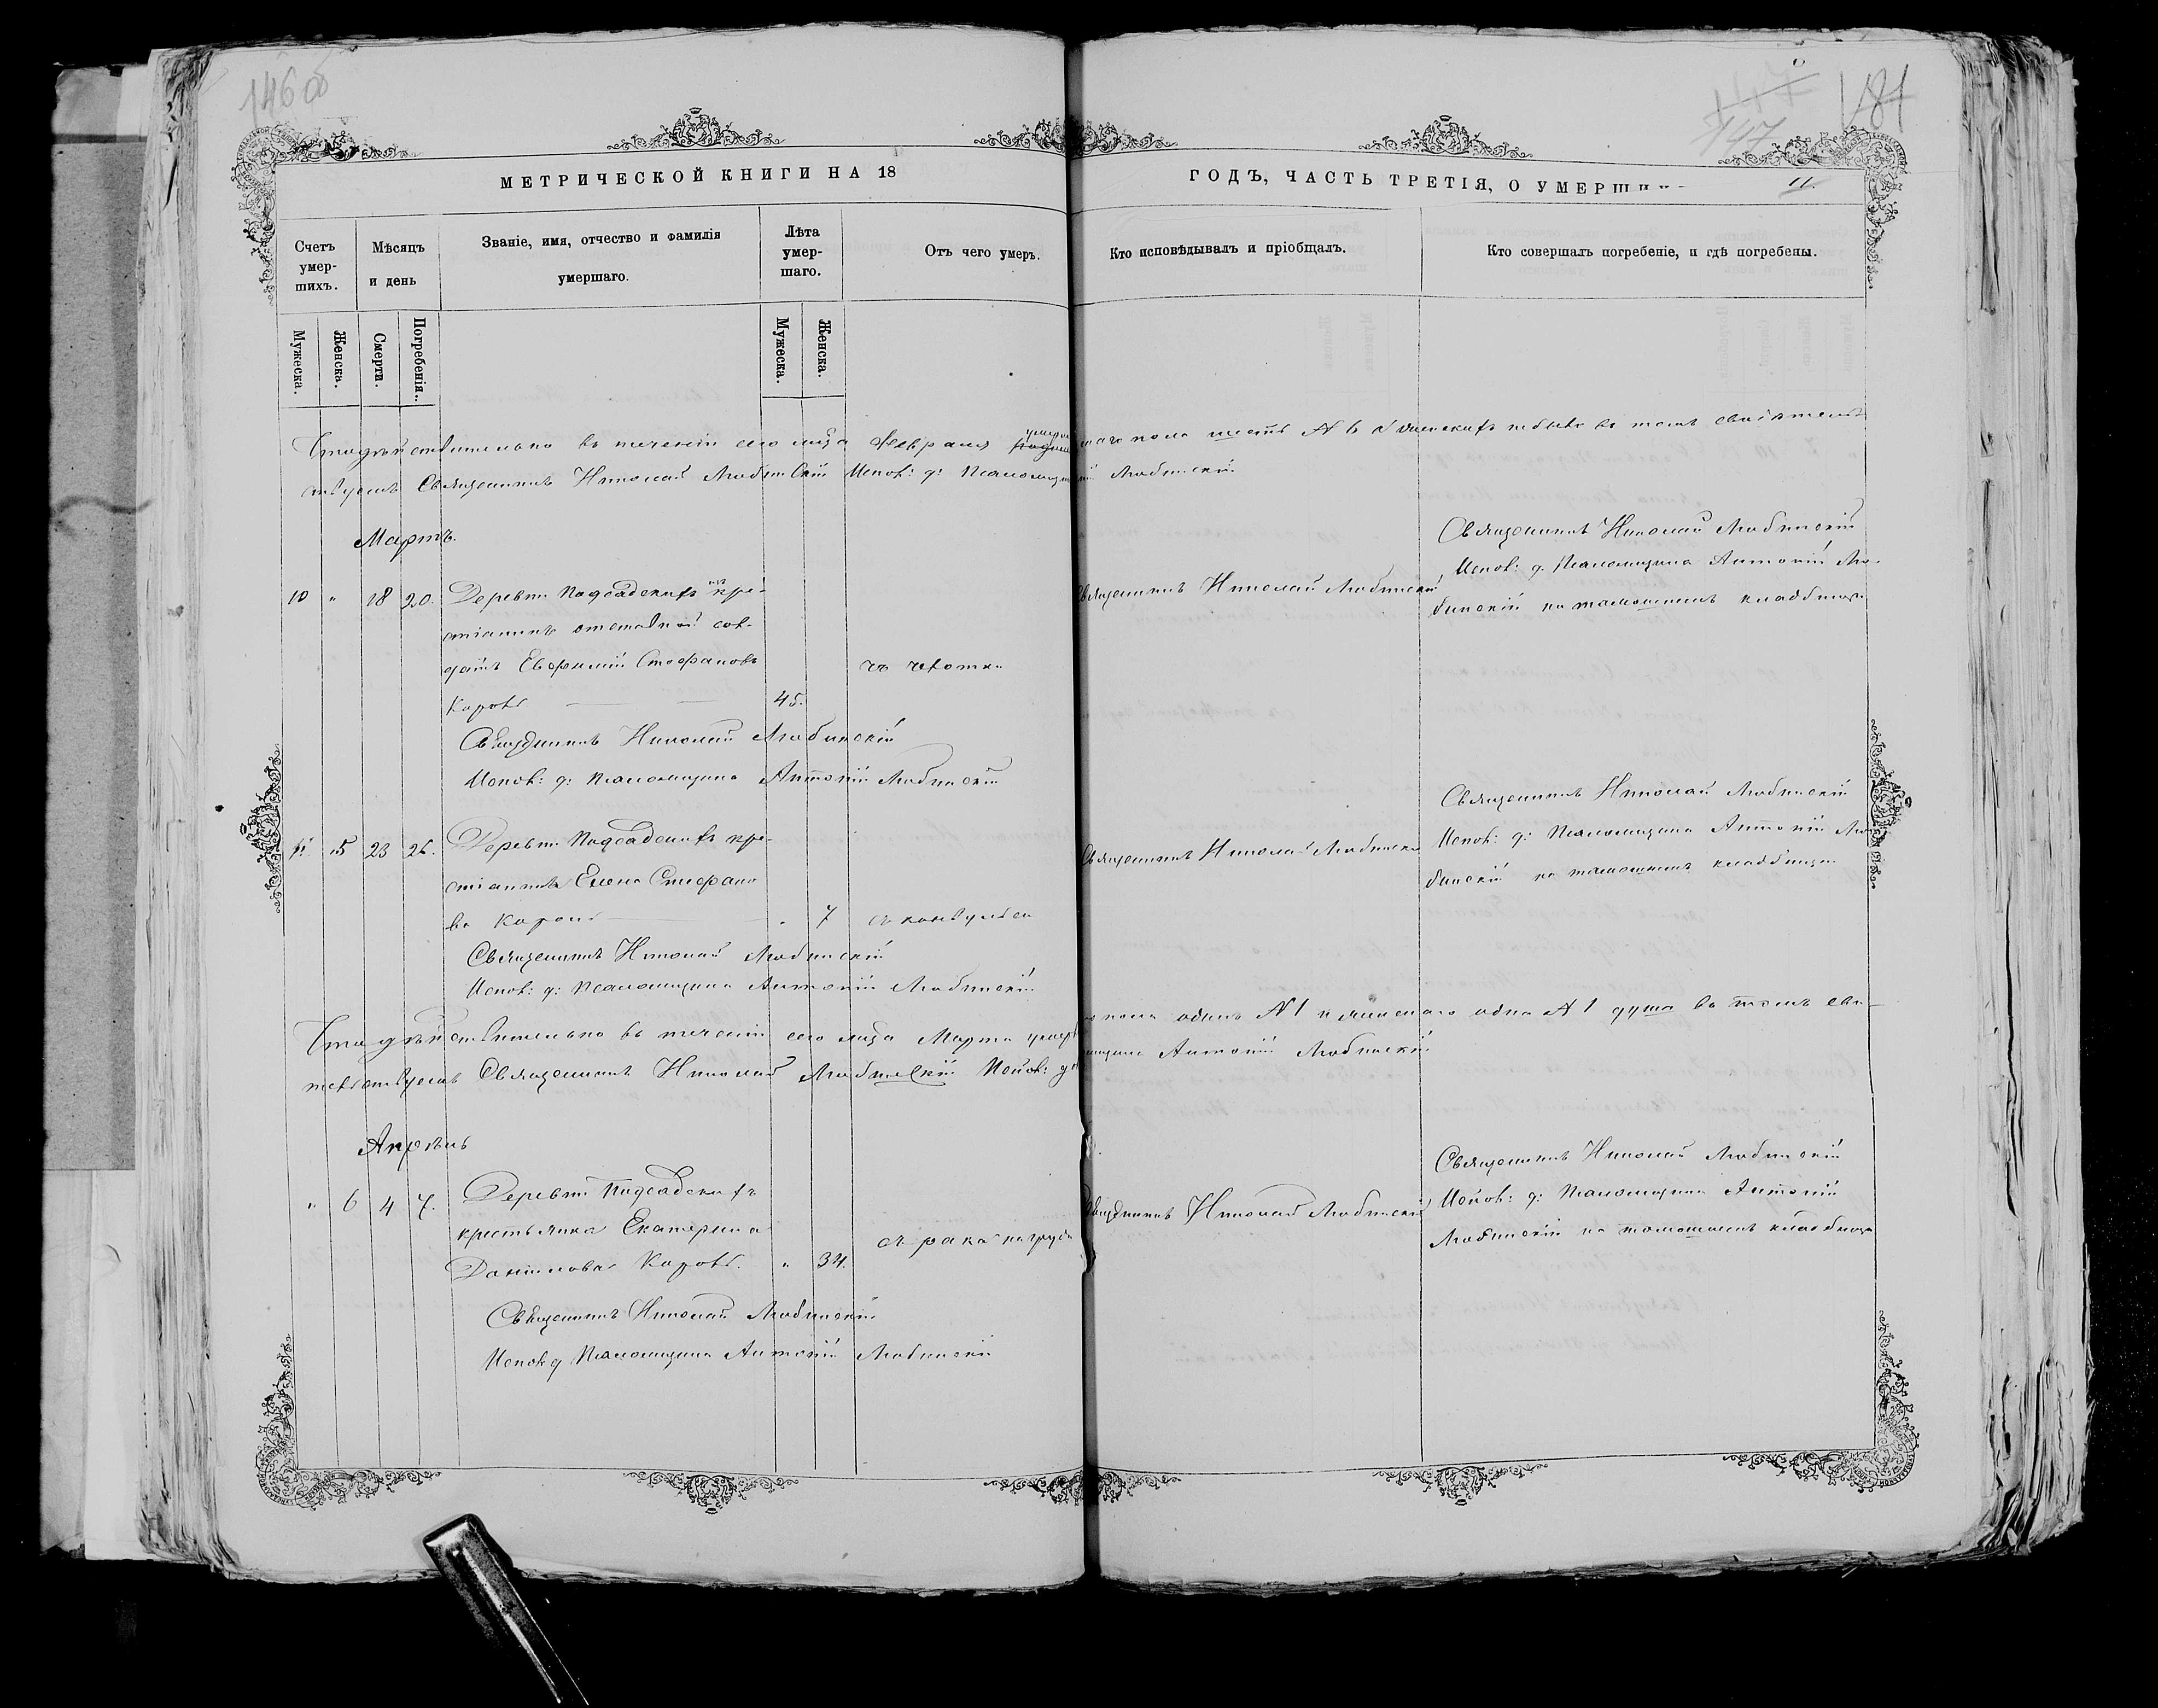 146об
147
181
МЕТРИЧЕСКОЙ КНИГИ НА 18
ГОДЪ, ЧАСТЬ ТРЕТІЯ, О УМЕРШИ
11.
Счетъ умер-шихъ.
Мѣсяцъ и день
Званіе, имя, отчество и фамилія умершаго.
Лѣта умер-шаго.
Отъ чего умеръ.
Кто исповѣдывалъ и пріобщалъ.
Кто совершалъ погребеніе, и гдѣ погребены.
Мужеска.
Женска.
Смерти.
Погребенія.
Мужеска.
Женска.
въ теченіи сего м-ца Февраля умерш наго пола шесть № 6 а женскихъ небыло въ томъ свидѣтель
ствуемъ Священникъ Николай Любинскій Испов: д: Псаломщик Любинскій
Мартъ.
10 " 18 20. Деревни Подсадскихъ кре-
стіанинъ отставной сол-
датъ Евфимій Стефановъ
Каровъ 45. чахотки
Священникъ Николай Любинскій
Священникъ Николай Любинскій
Испов: д. Псаломщика Антоній Лю-
бинскій на тамошнемъ кладбищѣ
Священникъ Николай Любинскій
Испов: д: Псаломщика Антоній Любинскій
" 5 23 26. Деревни Подсадскихъ кре-
стіанинъ Елена Стефано
ва " 7
Священникъ Николай Любинскій
Священникъ Николай Любинскій
Испов: д: Псаломщика Антоній Лю
бинскій на тамошнемъ кладбищѣ
Священникъ Николай Любинскій
Испов: д: Псаломщика Антоній Любинскій
въ теченіи сего м-ца Марта умер пола одинъ № 1 и женскаго одна № 1 душа въ томъ сви-
тельствуемъ Священникъ Николай Любинскій Испов: д Антоній Любинскій
Апрѣль
" 6 4 7. Деревни Подсадскихъ
крестьянка Екатерина
Даніилова Каровъ. " 34. съ рака на груди
Священникъ Николай Любинскій
Священникъ Николай Любинскій
Испов: д: Псаломщика Антоній
Любинскій на тамошнемъ кладбищѣ
Священникъ Николай Любинскій
Испов д Псаломщика Антоній Любинскій